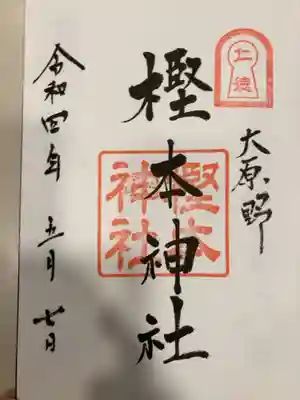 仁徳
大原野
樫本神社
樫本神社
令和四年 五月 七日